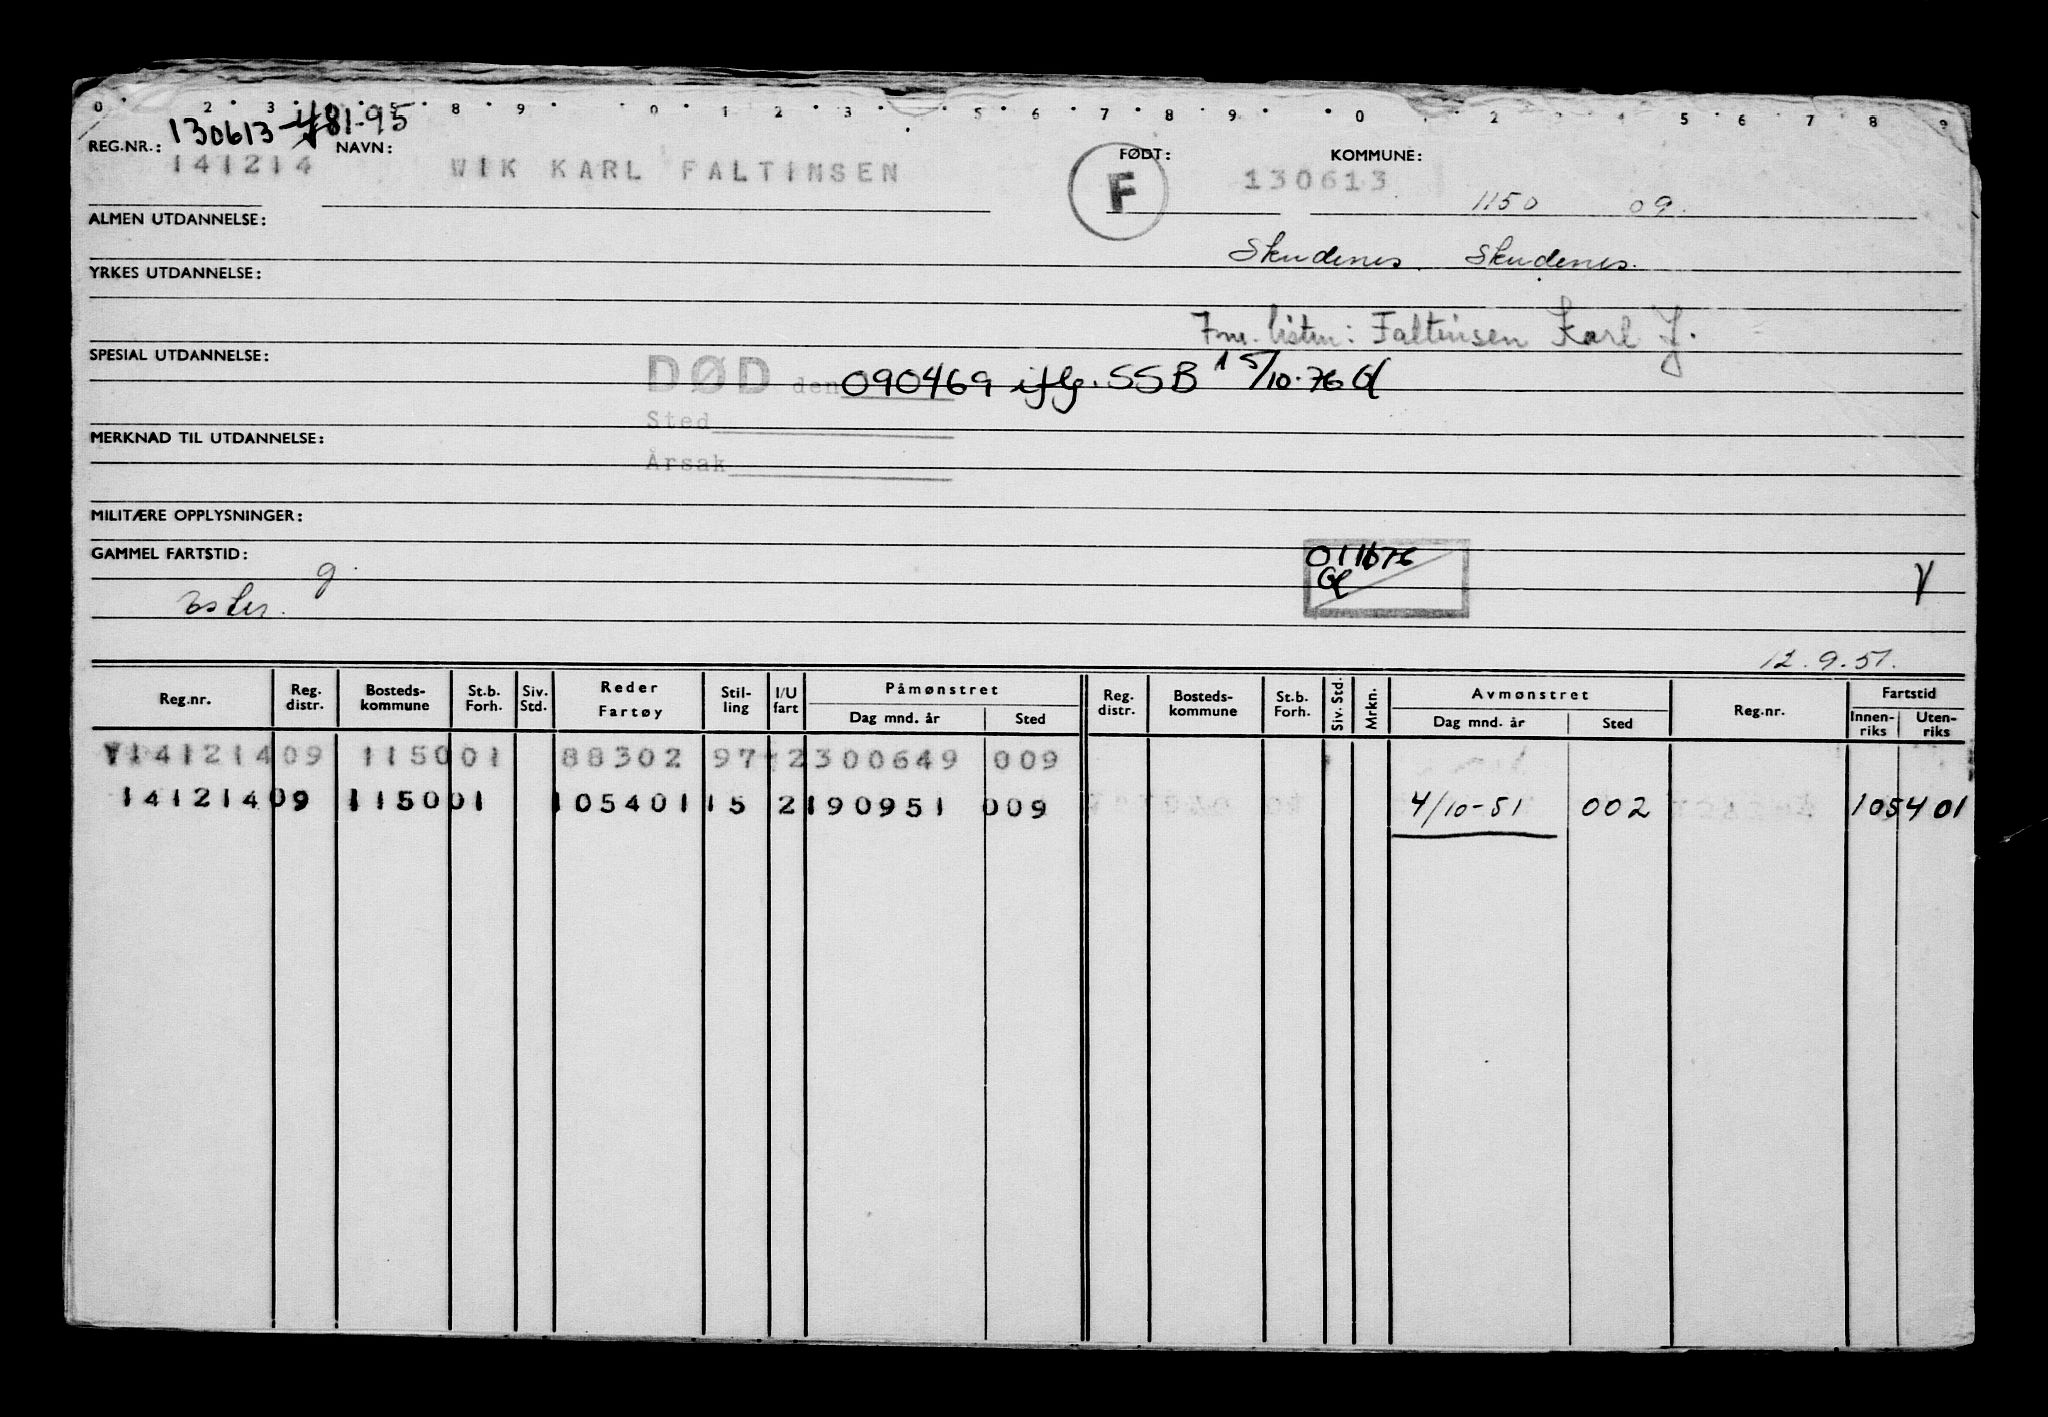 0 2 3 5 8 9 0 1 2 3 5 6 7 8 9 0 2 3 4 5 6 7 8 9
130613 481-95
REG.NR.: NAVN: FØDT: KOMMUNE:
141214 WIK KARL FALTINSEN F 130613
1150 09.
ALMEN UTDANNELSE:
Skudenes. Skudenes.
YRKES UTDANNELSE:
listen: Faltinsen Karl J.
SPESIAL UTDANNELSE:
DØD den 090469 iflg. SSB 15/10-76
Sted
MERKNAD TIL UTDANNELSE:
Årsak
MILITÆRE OPPLYSNINGER:
GAMMEL FARTSTID:
011176
g.
12.9.51.
Reg.nr. Reg. distr. Bosteds-kommune St.b. Forh. Siv. Std. Reder Fartøy Stil-ling I/U fart Påmønstret Dag mnd. år Sted Reg. distr. Bosteds-kommune St.b. Forh. Siv. Std. Mrkn. Avmønstret Dag mnd. år Sted Reg.nr. Fartstid Innen-riks Uten-riks
Y141214 09 1150 01 88302 97 2 300649 009
141214 09 1150 01 105401 15 2 190951 009 4/10-51 002 105401